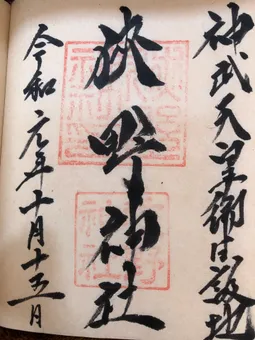 神武天皇御生誕地
狭野神社
令和元年十月十五日